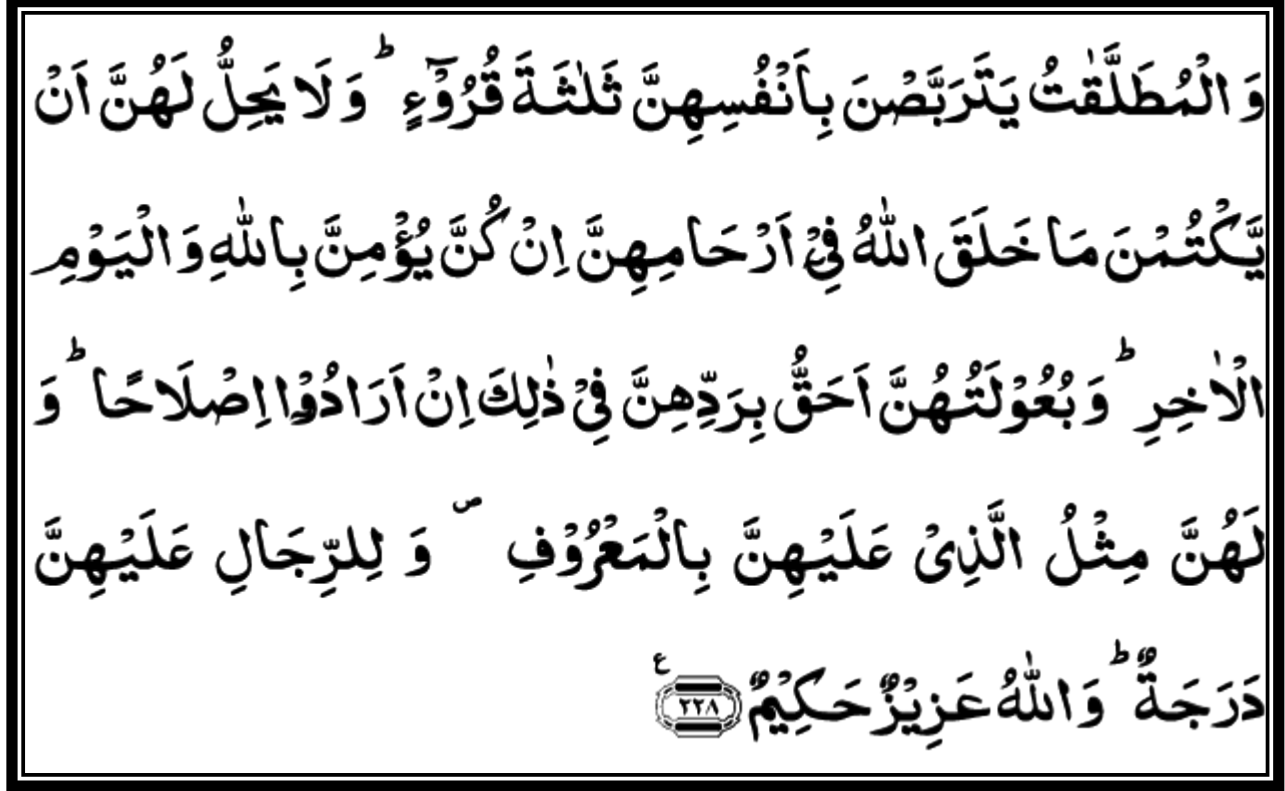 وَ الْمُطَلَّقٰتُ یَتَرَبَّصْنَ بِاَنْفُسِهِنَّ ثَلٰثَةَ قُرُوْٓءٍ ؕ وَ لَا یَحِلُّ لَهُنَّ اَنْ
یَّكْتُمْنَ مَا خَلَقَ اللّٰهُ فِیْۤ اَرْحَامِهِنَّ اِنْ كُنَّ یُؤْمِنَّ بِاللّٰهِ وَ الْیَوْمِ
الْاٰخِرِ ؕ وَ بُعُوْلَتُهُنَّ اَحَقُّ بِرَدِّهِنَّ فِیْ ذٰلِكَ اِنْ اَرَادُوْۤا اِصْلَاحًا ؕ وَ
لَهُنَّ مِثْلُ الَّذِیْ عَلَیْهِنَّ بِالْمَعْرُوْفِ ۪ وَ لِلرِّجَالِ عَلَیْهِنَّ
دَرَجَةٌ ؕ وَ اللّٰهُ عَزِیْزٌ حَكِیْمٌ ﴿۲۲۸﴾ ع